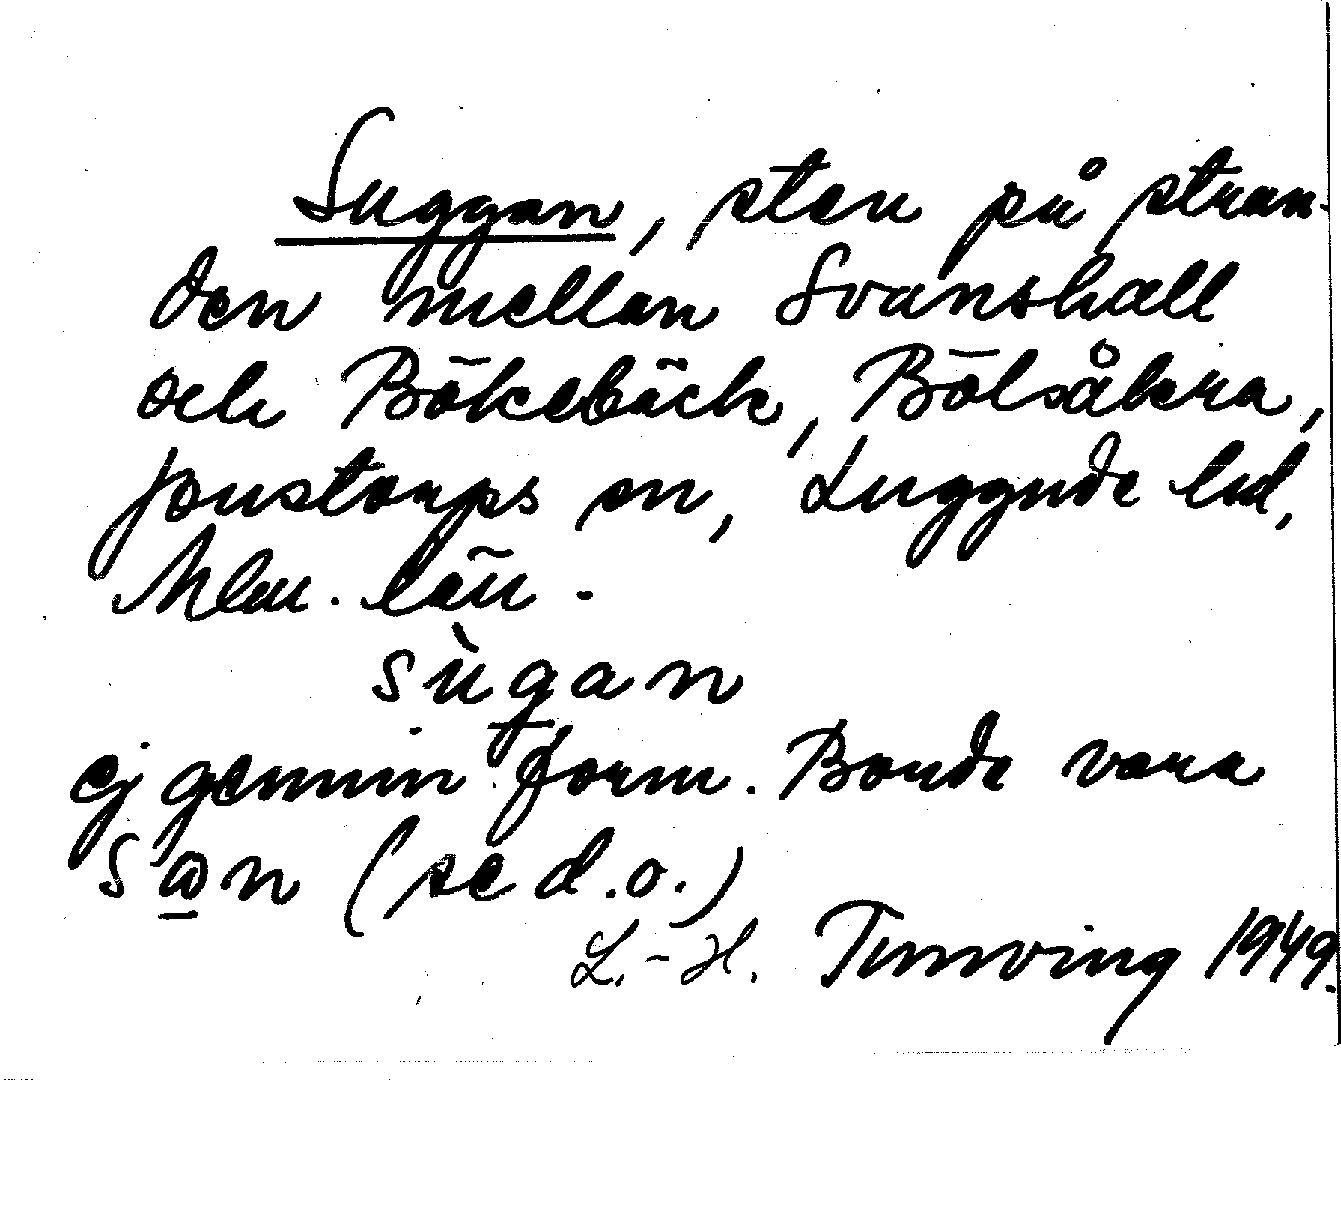 Suggan, sten på stran-
den mellan Svanshall
och Bökebäck, Bölsåkra,
Jonstorps sn, Luggude hd,
Mlm. län.
sùgan
ej genuin form. Borde vara
sωn (se d.o.)
L.-H. Tunving 1949.